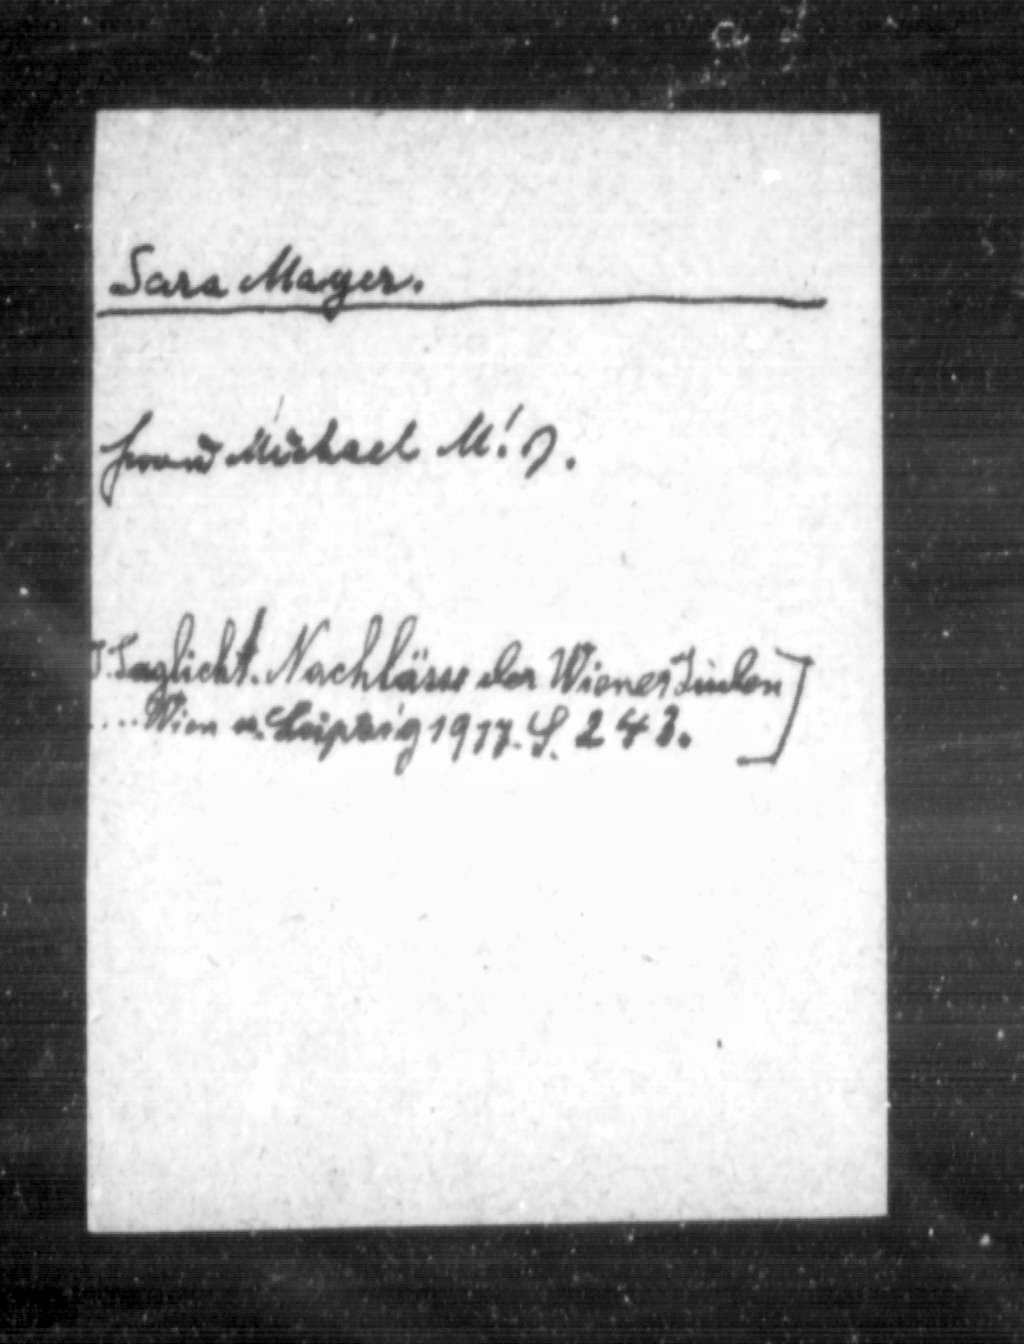 Sara Mayer.
Frau Michael M.'s.
J. Taglicht. Nachlässe der Wiener Juden
.... Wien u. Leipzig 1917. S. 243.